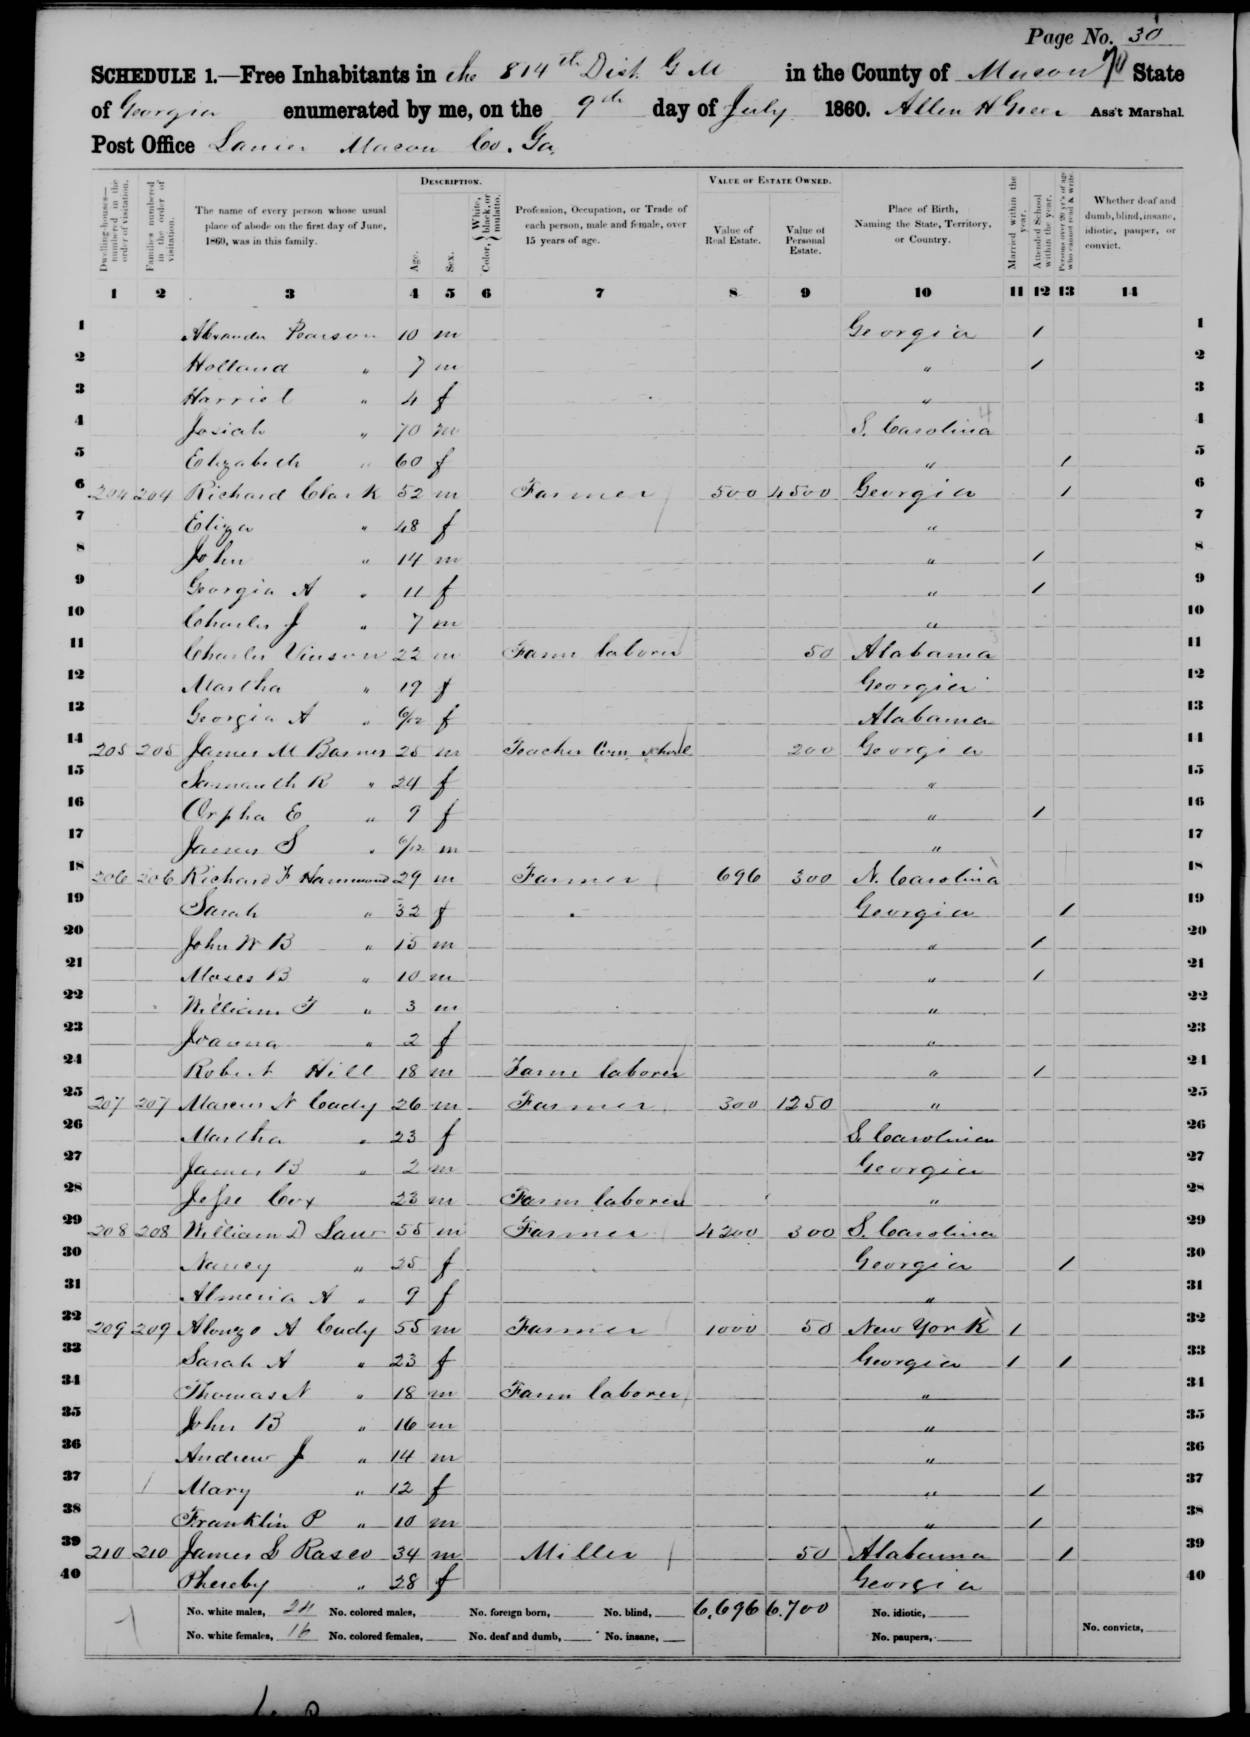 Page No. 30
SCHEDULE 1.—Free Inhabitants in the 814th Dist G M in the County of Macon State
of Georgia enumerated by me, on the 9th day of July 1860. Allen H Greer Ass't Marshal.
Post Office Lanier Macon Co. Ga.
DESCRIPTION. VALUE OF ESTATE OWNED.
Dwelling-houses—numbered in the order of visitation. Families numbered in the order of visitation. The name of every person whose usual place of abode on the first day of June, 1860, was in this family. Age. Sex. Color, { White, black, or mulatto. Profession, Occupation, or Trade of each person, male and female, over 15 years of age. Value of Real Estate. Value of Personal Estate. Place of Birth, Naming the State, Territory, or Country. Married within the year. Attended School within the year. Persons over 20 y'rs of age who cannot read & write. Whether deaf and dumb, blind, insane, idiotic, pauper, or convict.
1 2 3 4 5 6 7 8 9 10 11 12 13 14
1 Alexander Pearson 10 m Georgia 1 1
2 Holland " 7 m " 1 2
3 Harriet " 4 f " 3
4 Josiah " 70 m S. Carolina 4
5 Elizabeth " 60 f " 1 5
6 204 204 Richard Clark 52 m Farmer 500 4500 Georgia 1 6
7 Eliza " 48 f " 7
8 John " 14 m " 1 8
9 Georgia A " 11 f " 1 9
10 Charles J " 7 m " 10
11 Charles Vinson 22 m Farm laborer 50 Alabama 11
12 Martha " 19 f Georgia 12
13 Georgia A " 6/12 f Alabama 13
14 205 205 James M Barnes 25 m Teacher Com. School 200 Georgia 14
15 Samanth R " 24 f " 15
16 Orpha E " 9 f " 1 16
17 James S " 6/12 m " 17
18 206 206 Richard F Hammond 29 m Farmer 696 300 N. Carolina 18
19 Sarah " 32 f Georgia 1 19
20 John W B " 15 m " 1 20
21 Moses B " 10 m " 1 21
22 William F " 3 m " 22
23 Joanna " 2 f " 23
24 Robert Hill 18 m Farm laborer " 1 24
25 207 207 Marcus N Cudy 26 m Farmer 300 1250 " 25
26 Martha " 23 f S. Carolina 26
27 James B " 2 m Georgia 27
28 Jesse Cox 23 m Farm laborer " 28
29 208 208 William D Law 55 m Farmer 4200 300 S. Carolina 29
30 Nancy " 25 f Georgia 1 30
31 Almeria A " 9 f " 31
32 209 209 Alonzo A Cudy 55 m Farmer 1000 50 New York 1 32
33 Sarah A " 23 f Georgia 1 1 33
34 Thomas N " 18 m Farm laborer " 34
35 John B " 16 m " 35
36 Andrew J " 14 m " 36
37 Mary " 12 f " 1 37
38 Franklin P " 10 m " 1 38
39 210 210 James L Rasco 34 m Miller 50 Alabama 1 39
40 Phereby " 28 f Georgia 40
No. white males, 24 No. colored males, No. foreign born, No. blind, 6,696 6.700 No. idiotic,
No. white females, 16 No. colored females, No. deaf and dumb, No. insane, No. paupers, No. convicts,